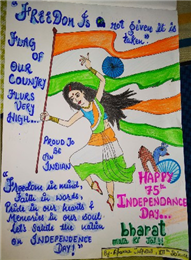 "FREEDOM Is a not given it is
taken."
FLAG
OF
OUR COUNTRY
FLURS
VERY
HIGH...
PROUD To
BE
An
INDIAN
"Freedom in mind,
Faith in words,
Pride in our hearts &
Memories in our soul.
Let's Salute the nation
On INDEPENDENCE
DAY!"
HAPPY
75th
INDEPENDANCE
DAY...
bharat
mata ki Jai!!
By-